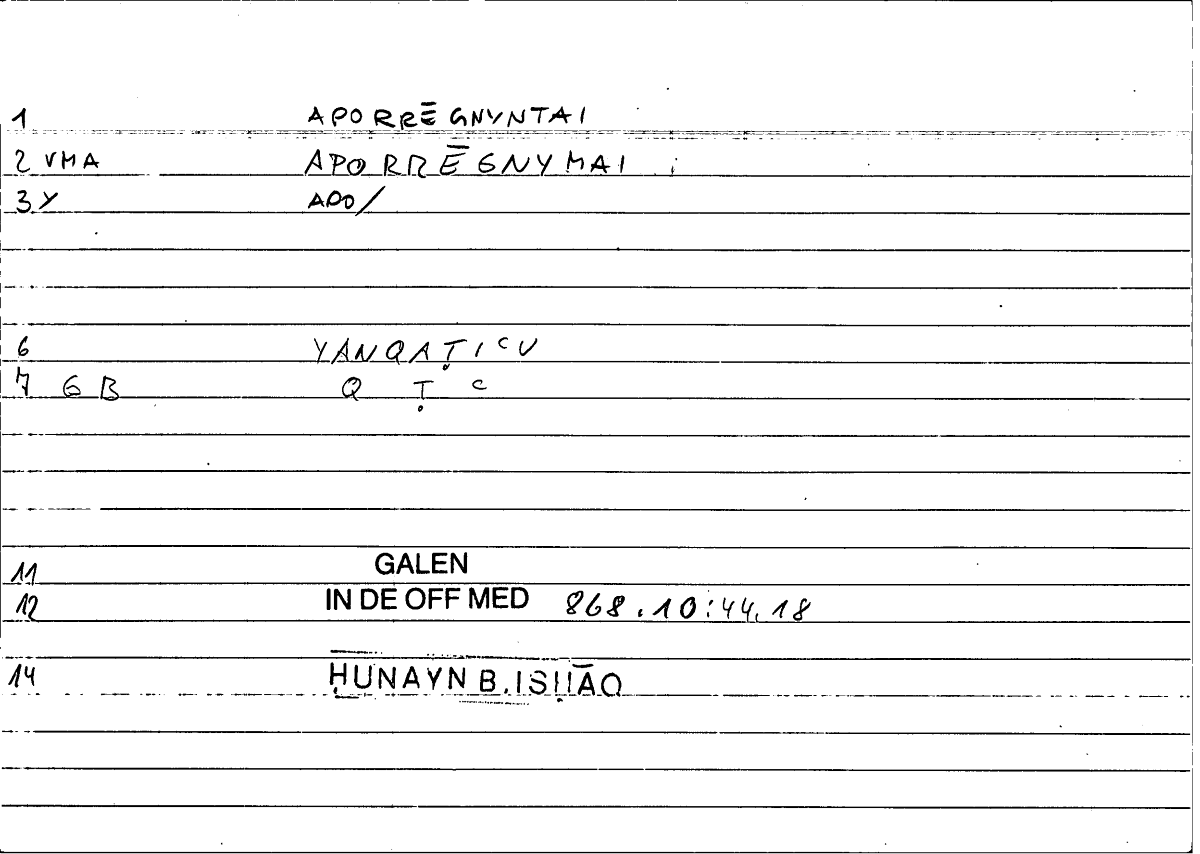 1 APORRĒGNYNTAI
2 VMA APORRĒGNYMAI
3 Y APO/
6 YANQAṬIᶜU
7 GB Q Ṭ ᶜ
11 GALEN
12 IN DE OFF MED 868.10:44.18
14 ḤUNAYN B. ISḤĀQ